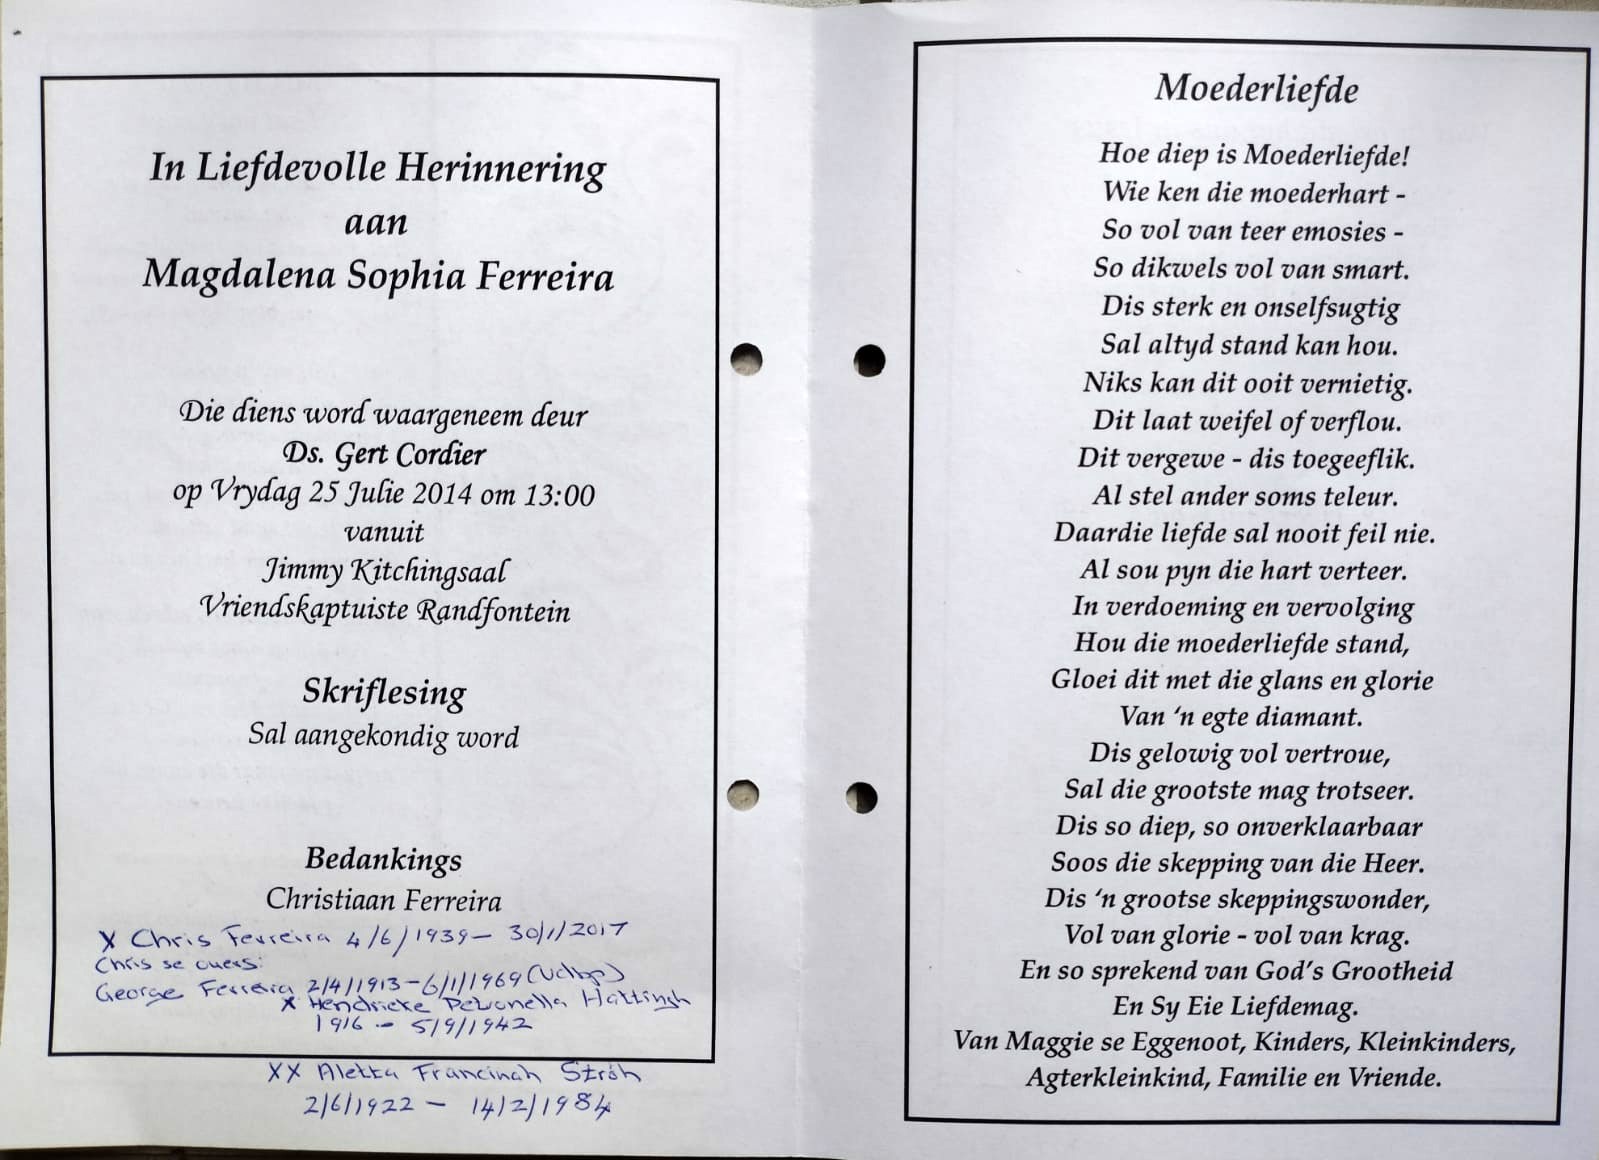 In Liefdevolle Herinnering
aan
Magdalena Sophia Ferreira
Die diens word waargeneem deur
Ds. Gert Cordier
op Vrydag 25 Julie 2014 om 13:00
vanuit
Jimmy Kitchingsaal
Vriendskaptuiste Randfontein
Skriflesing
Sal aangekondig word
Bedankings
Christiaan Ferreira
X Chris Ferreira 4/6/1939 - 30/1/2017
Chris se ouers:
George Ferreira 2/4/1913 - 6/1/1969
X Hendricke Petronella Hattingh
1916 - 5/9/1942
XX Aletta Francinah Ströh
2/6/1922 - 14/2/1984
Moederliefde
Hoe diep is Moederliefde!
Wie ken die moederhart -
So vol van teer emosies -
So dikwels vol van smart.
Dis sterk en onselfsugtig
Sal altyd stand kan hou.
Niks kan dit ooit vernietig.
Dit laat weifel of verflou.
Dit vergewe - dis toegeeflik.
Al stel ander soms teleur.
Daardie liefde sal nooit feil nie.
Al sou pyn die hart verteer.
In verdoeming en vervolging
Hou die moederliefde stand,
Gloei dit met die glans en glorie
Van ‘n egte diamant.
Dis gelowig vol vertroue,
Sal die grootste mag trotseer.
Dis so diep, so onverklaarbaar
Soos die skepping van die Heer.
Dis ‘n grootse skeppingswonder,
Vol van glorie - vol van krag.
En so sprekend van God's Grootheid
En Sy Eie Liefdemag.
Van Maggie se Eggenoot, Kinders, Kleinkinders,
Agterkleinkind, Familie en Vriende.